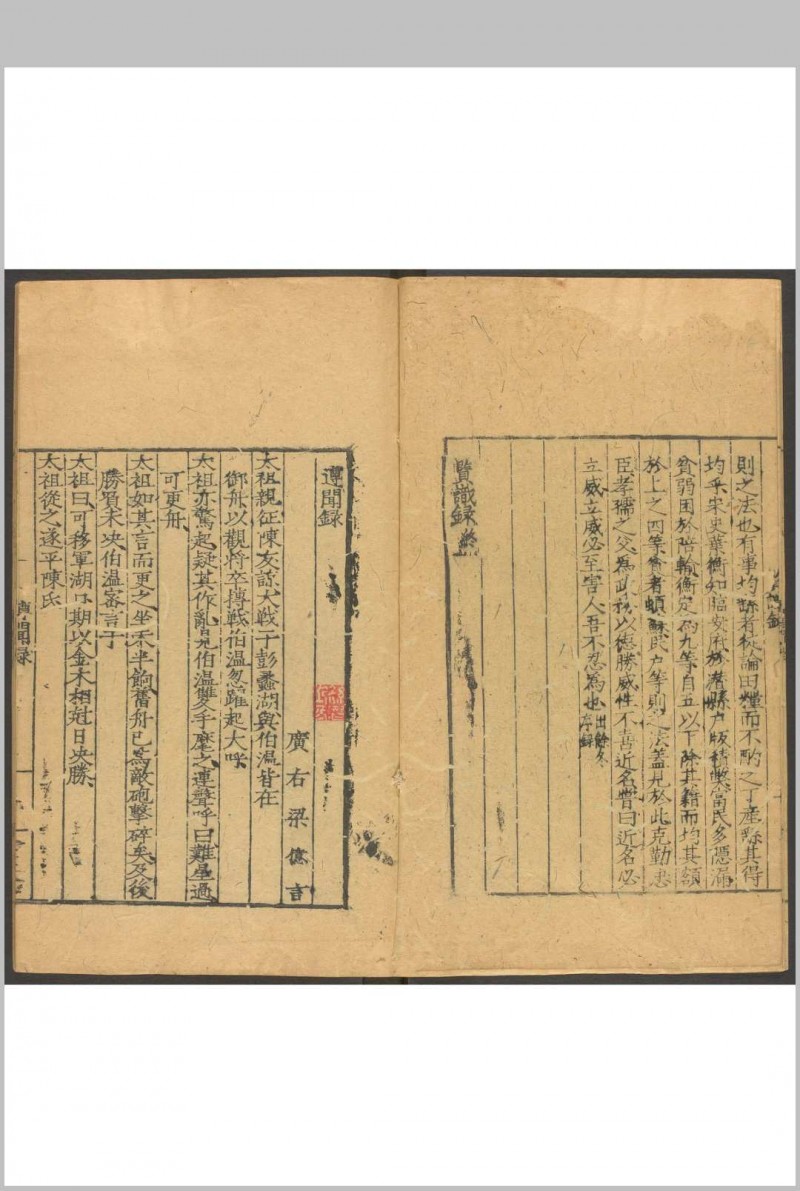 則之法也有事均繇者從論田糧而不酌之丁產繇其得
均乎宋史葉衡知臨安府於潛縣户版積弊富民多隱漏
貧弱困於陪輸衡定為九等自五以下除其籍而均其額
於上之四等貧者頓蘇民户等則之法蓋見於此克勤忠
臣孝孺之父為政務以德勝威性不喜近名嘗曰近名必
立威立威必至害人吾不忍為也出餘冬序錄
賢識録終
遵聞録
廣右梁億言
太祖親征陳友諒大戰于彭蠡湖與伯温皆在
御舟以觀將卒搏戰伯温忽躍起大呼
太祖亦驚起疑其作亂見伯温雙手麾之連聲呼曰難星過
可更舟
太祖如其言而更之坐未半餉舊舟已為敵砲擊碎矣及後
勝負未决伯温密言于
太祖曰可移軍湖口期以金木相尅日决勝
太祖從之遂平陳氏
遵聞録
一